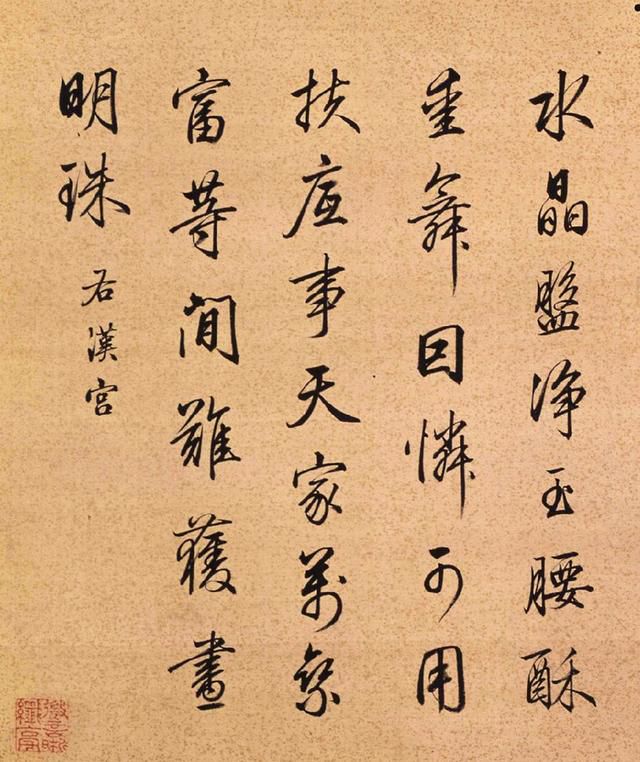 水晶盤淨玉腰酥
重舞囙憐可用
扶底事天家萬乘
富等間難獲畫
明珠 右漢宮